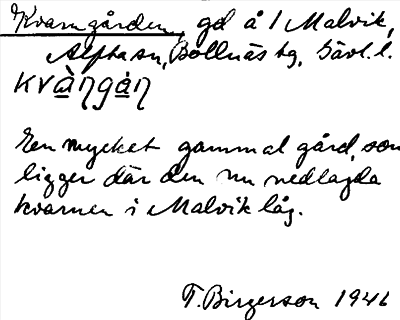 Kvarngården, gd å 1 Malvik,
Alfta sn, Bollnäs tg, Gävl. l.
kvàŋgáŋ
En mycket gammal gård, som
ligger där den nu nedlagda
kvarnen i Malvik låg.
T. Birgerson 1946